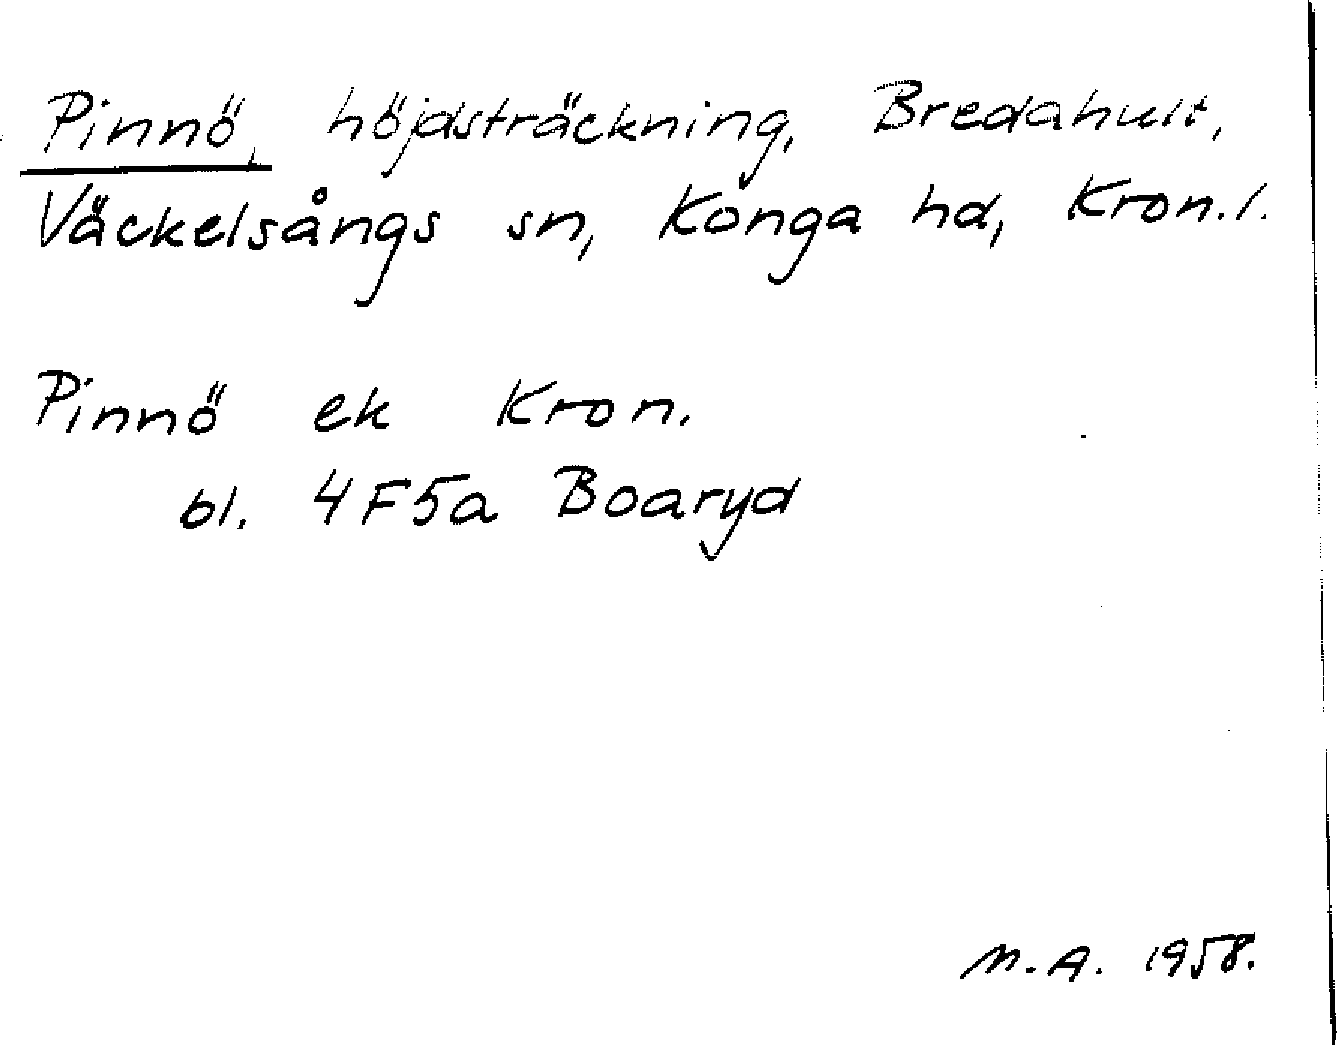 Pinnö, höjdsträckning, Bredahult,
Väckelsångs sn, Konga hd, Kron. l.
Pinnö ek Kron.
bl. 4F5a Boaryd
M.A. 1958.